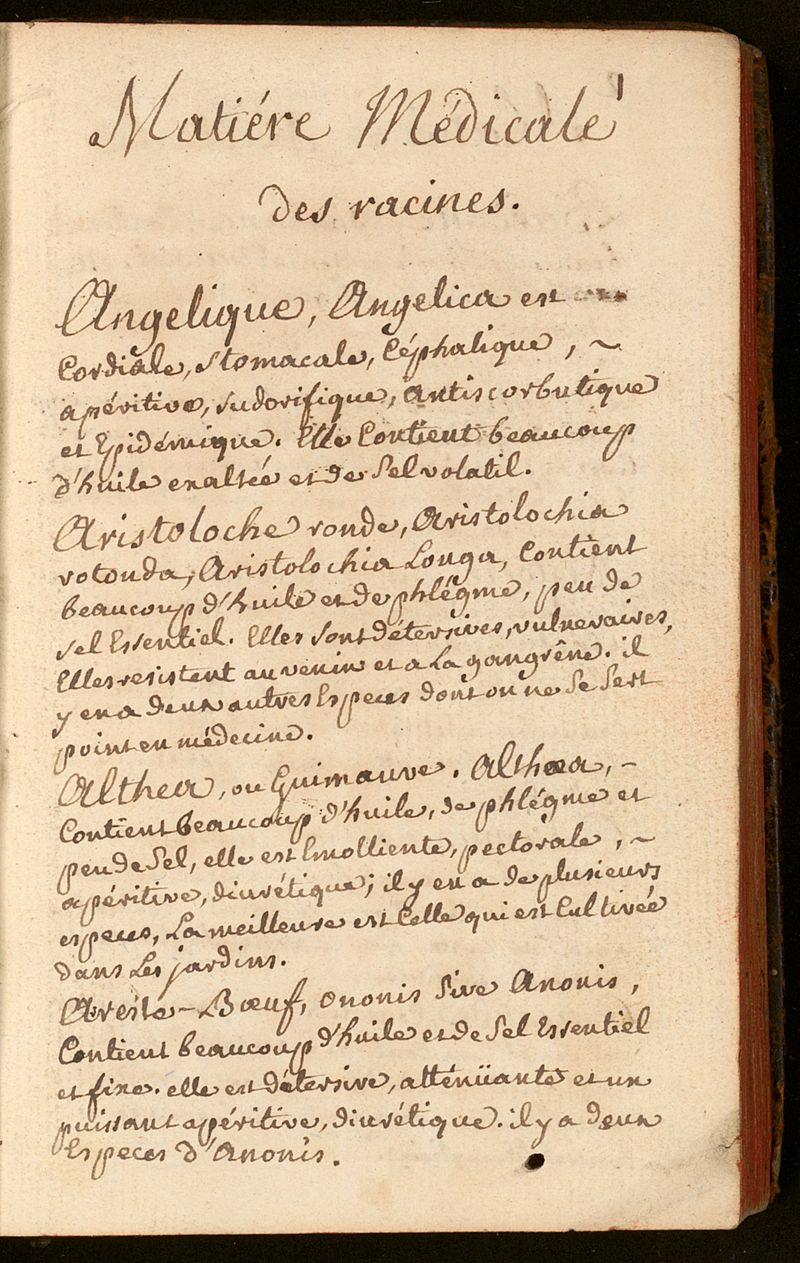 Matiére Médicale
des racines.
Angelique, Angelica est
Cordiale, stomacale, Céphalique, ~
apéritive, sudorifique, Antiscorbutique
et Epidémique. Elle Contient beaucoup
d'huile exaltée et de Sel volatil.
Aristoloche ronde, Aristolochia
rotonda, Aristolochia Longa, Contient
beaucoup d'huile et de phlégme, peu de
sel Essentiel. Elles sont détersives, vulneraires,
Elles resistent au venin et a La gangrêne. il
y en a deux autres Especes dont on ne Se Sert
point en médecine.
Althea, ou Guimauve. Althæa, -
Contient beaucoup d'huile, de phlégme et
peu de Sel, elle est Emolliente, pectorale, ~
apéritive, diurétique; il y en a de plusieurs
especes, La meilleure est Celle qui est Cultivée
dans Les jardins.
Areste-Bœuf, ononis Sive Anonis,
Contient beaucoup d'huile et de Sel Essentiel
et fixe. elle est détersive, attenüante et un
puissant apéritive, diurétique. il y a deux
Especes d'Anonis.